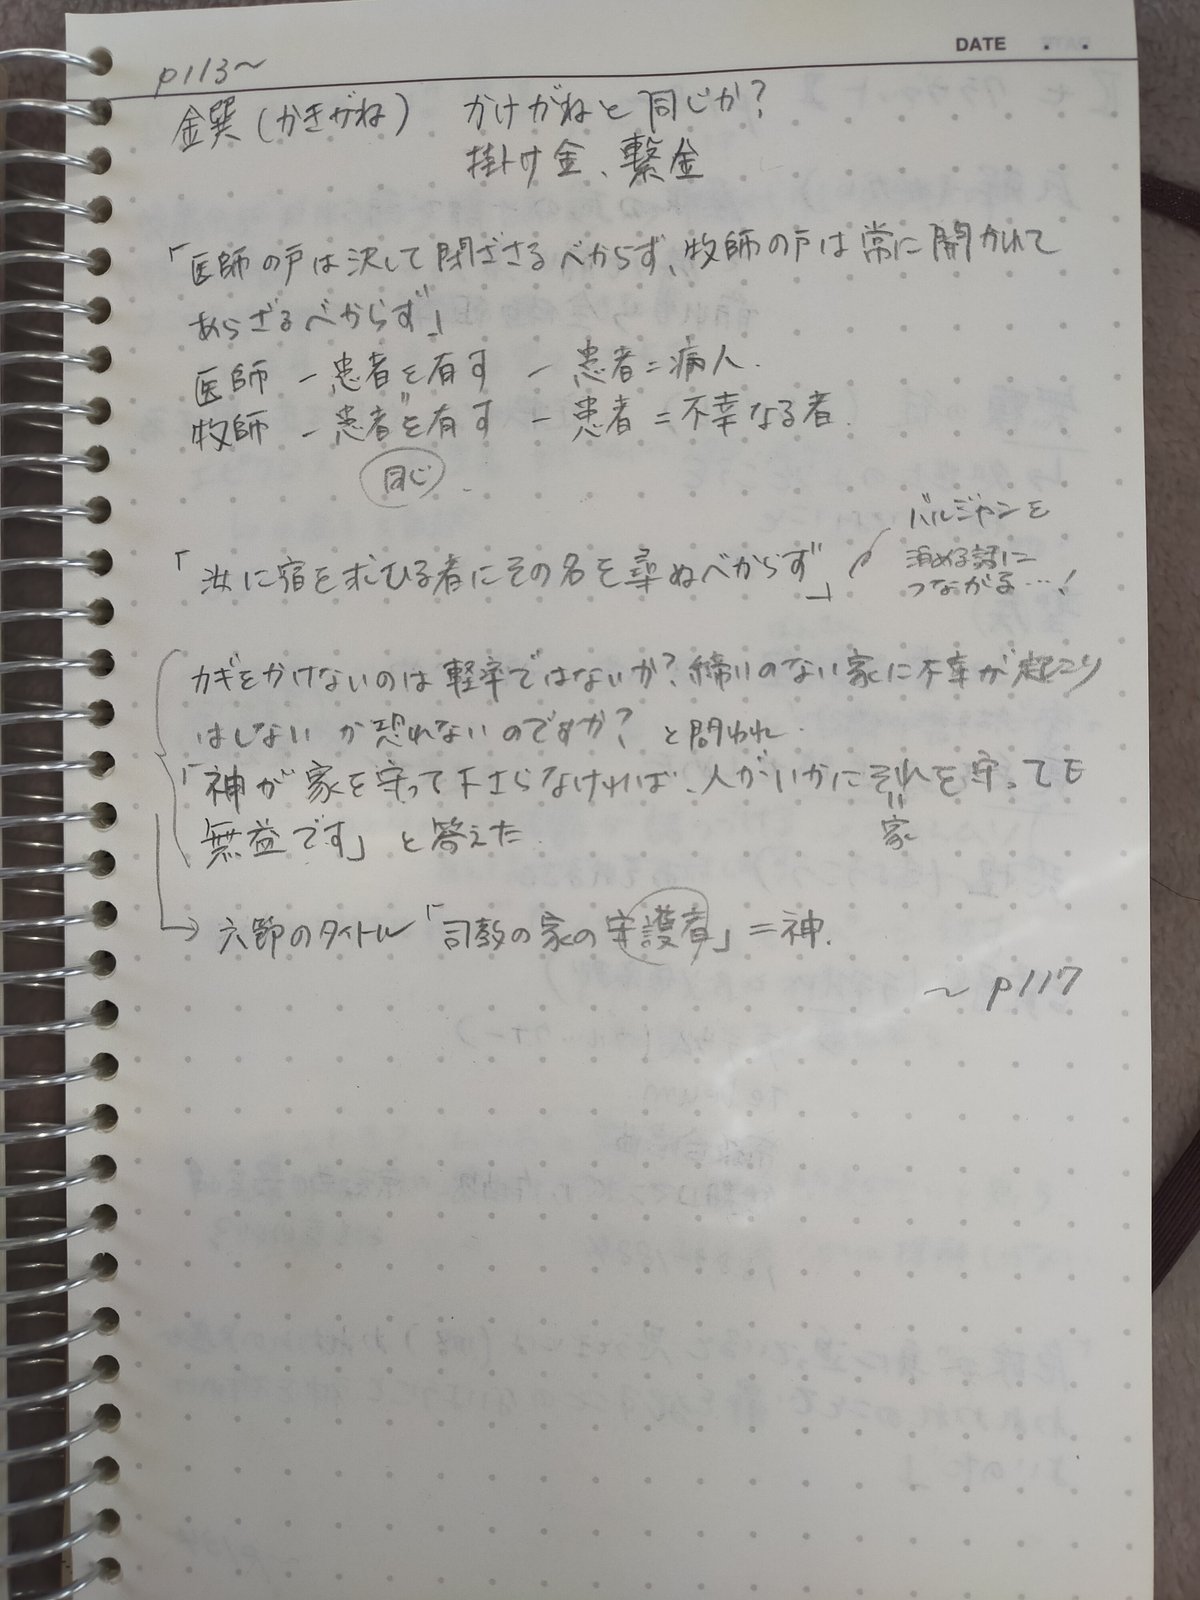 DATE . .
p113～
金巽(かきがね) かけがねと同じか?
掛け金、繋金
「医師の戸は決して閉ざさるべからず、牧師の戸は常に開かれて
あらざるべからず」
医師 － 患者を有す － 患者=病人.
牧師 － 患者を有す － 患者=不幸なる者.
同じ.
「汝に宿を求むる者にその名を尋ぬべからず」
バルジャンを
泊める話に
つながる…!
カギをかけないのは軽率ではないか?締りのない家に不幸が起こり
はしないか恐れないのですか? と問われ.
「神が家を守って下さらなければ、人がいかにそれを守っても
=家
無益です」と答えた.
→ 六節のタイトル「司教の家の守護者」=神.
～p117